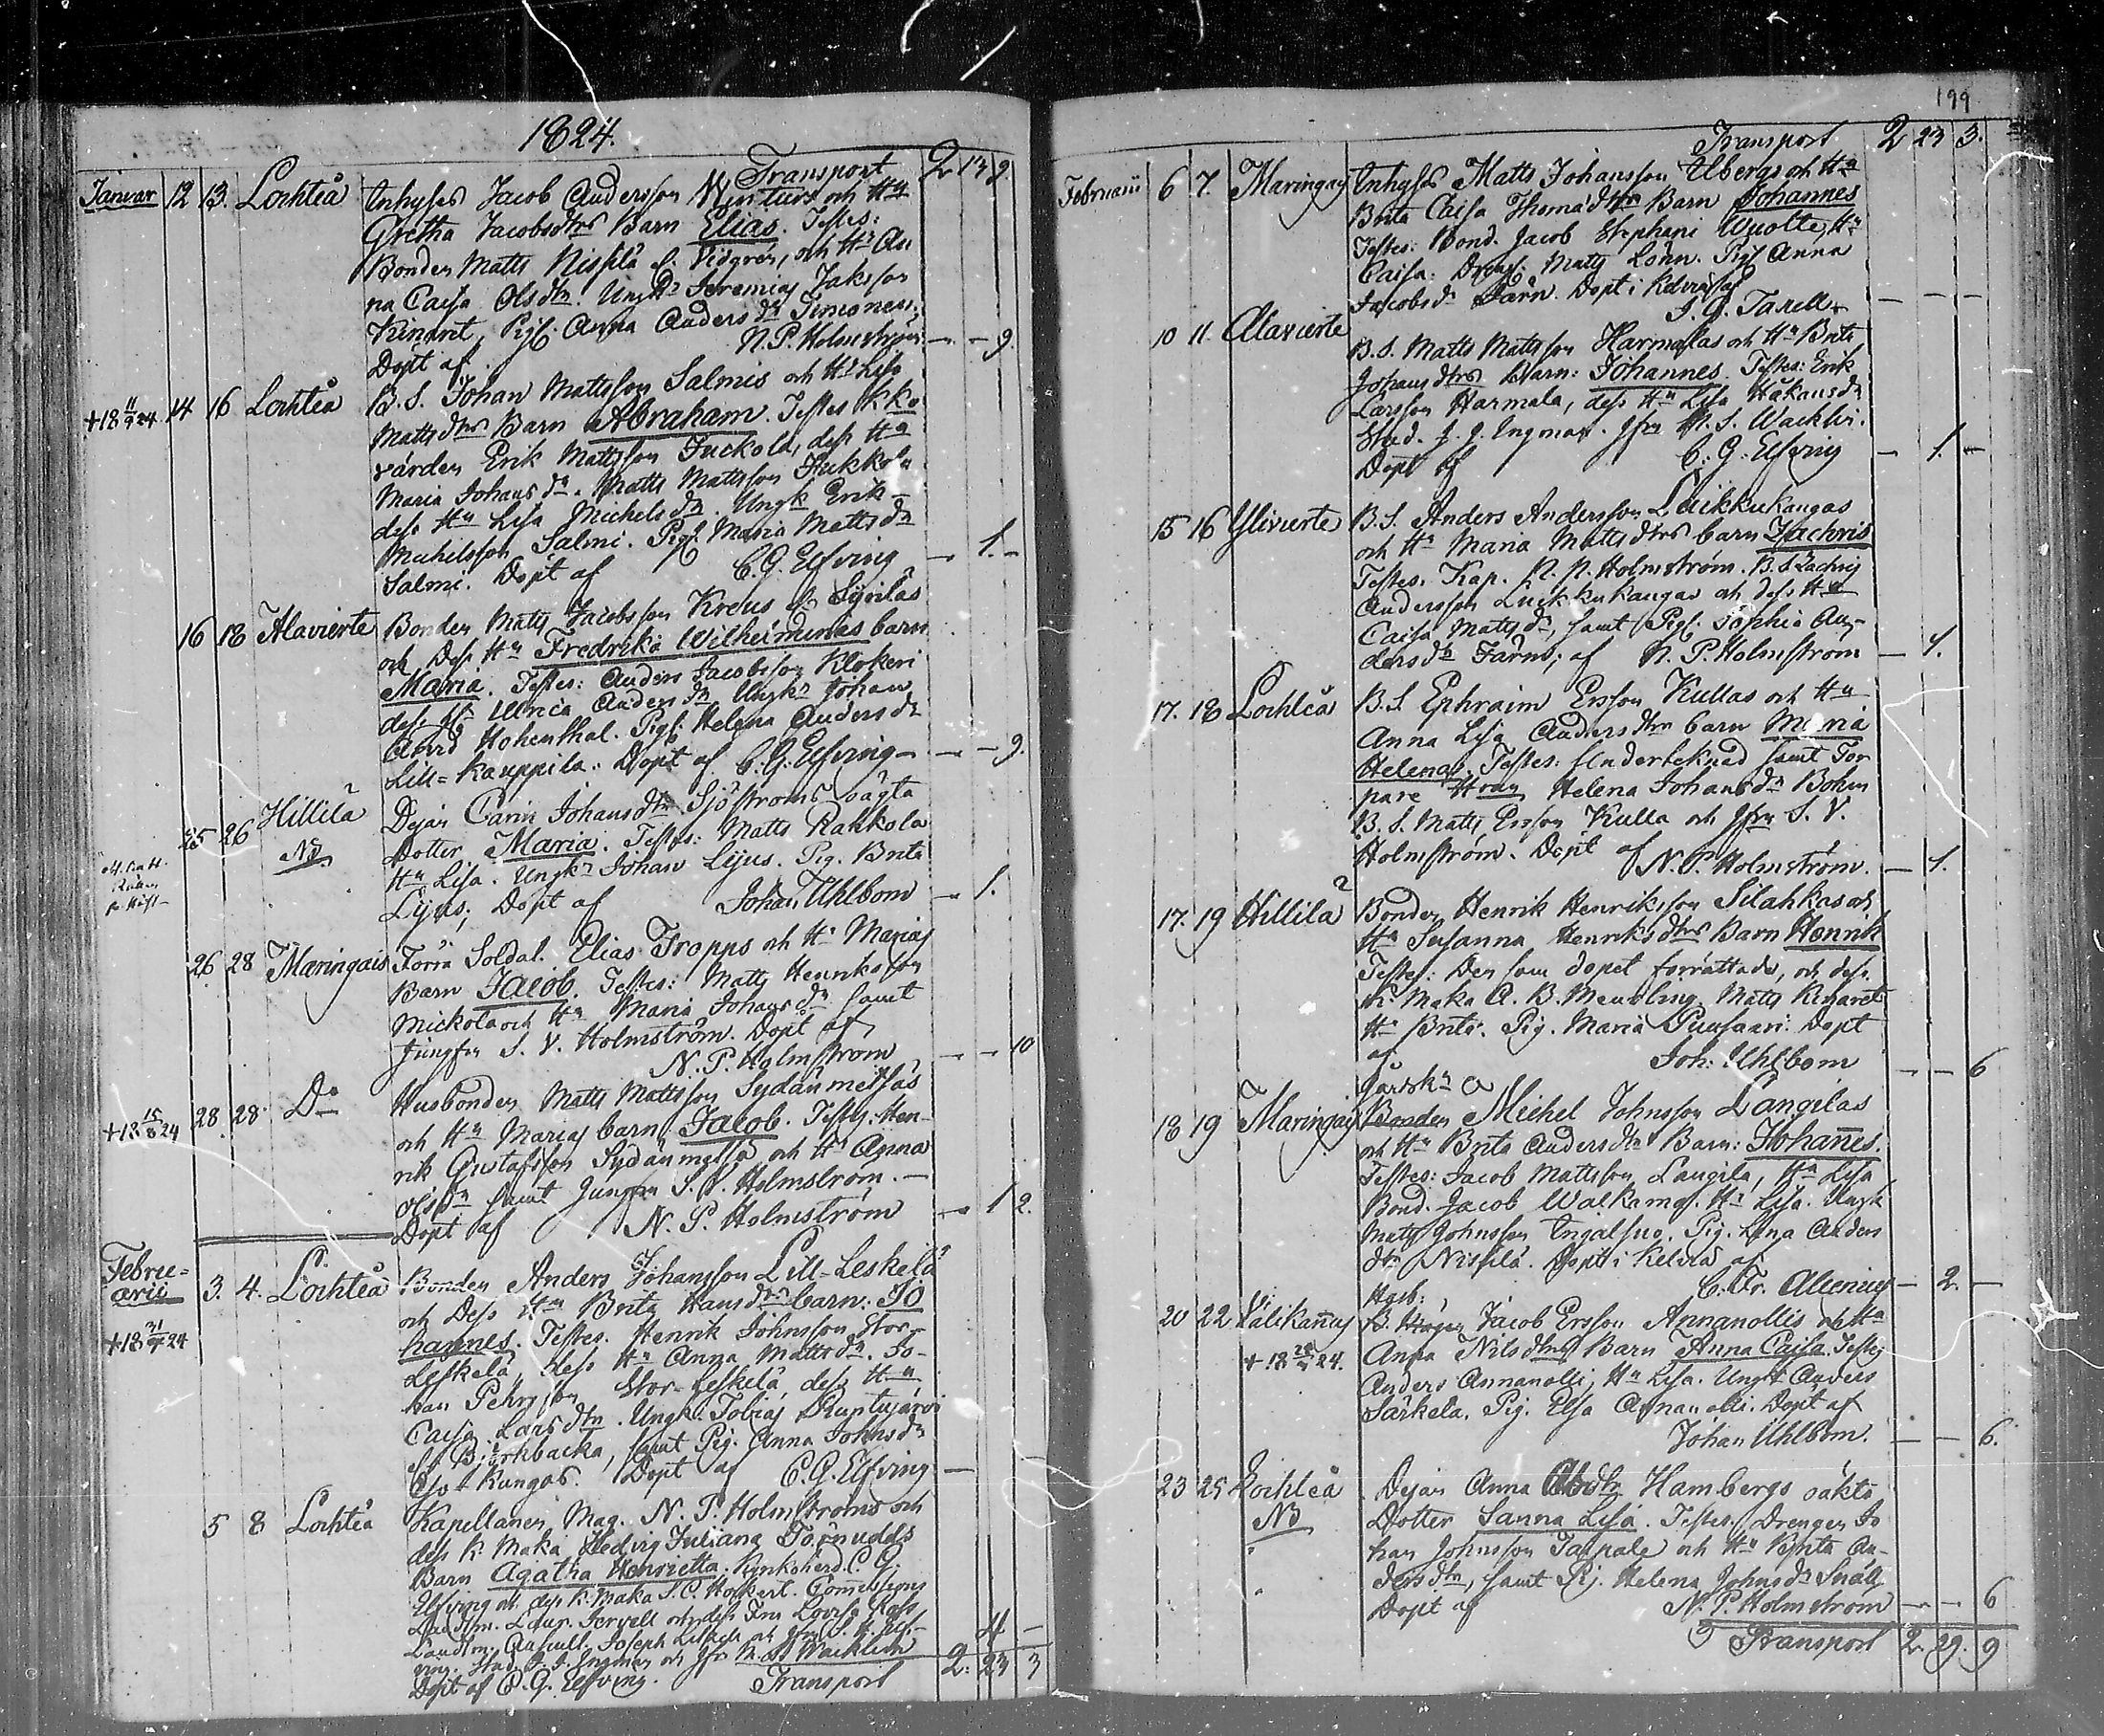 1824.
Transport 2 13 9.
Januar 12 13. Lochteå Inhyses Jacob Andersson och Hu
Gretha Jacobsdtrs Barn Elias. Testes:
Bonden Matts Nissilä l. Vidgren, och Hu An
na Caisa Olsdtr. Ungk. Jeremias Jaksson
Kinaret, Pig. Anna Andersdr Timonen;
Dopt af N. P. Holmström — — 9.
+18 11/9 24 14 16 Lochteå B. S. Johan Mattsson Salmis och Hu Lisa
Mattsdtrs Barn Abraham. Testes Kko
värden Erik Mattsson Juckola, dess Hu
Maria Johansdr. Matts Mattsson Jukkola
dess Hu Lisa Michelsdr. Ungk Erik
Michelsson Salmi. Pig. Maria Mattsdr
Salmi. Dopt af C. G. Elfving — 1. —
16 18 Alavierte Bonden Matts Jacobsson Kreus l. Syrilas
och Dess Hu Fredrika Wilhelminas barn
Maria. Testes: Anders Jacobsson Klokeri
dess Hu Ulrica Andersdr Ungkr Johan
Anrd Hohenthal. Pig. Helena Andersdr
Lill=Kauppila. Dopt af C. G. Elfving — — 9.
25 26 Hillilä Dejan Carin Johansdtr Sjöstroms oägta
NB Dotter Maria. Testes: Matts Rahkola
Hu Lisa. Ungkr Johan Lijus. Pig. Brita
Lijus; Dopt af Johan Uhlbom — 1.
26. 28 Maringais Förra Soldat. Elias Tropps och Hu Marias
Barn Jacob. Testes: Matts Henriksson
Mickola och Hu Maria Johansdr samt
Jungfru S. V. Holmström. Dopt af
N. P. Holmström — — 10
+18 15/8 24 28. 28. Do Husbonden Matts Mattsson Sydänmetsäs
och Hu Marias barn Jacob. Testes. Hen-
rik Gustafsson Sydänmetsä och Hu Anna
Olsdr samt Jungfru S. V. Holmström. —
Dopt af N. P. Holmström — 1 2.
Febru=
arii 3. 4. Lochteå Bonden Anders Johansson Lill=Leskelä
+18 31/ 24 och Dess Hu Brita Hansdtrs barn: Jo
hannes. Testes. Henrik Johnsson Stor-
Leskelä, dess Hu Anna Mattsdr. Jo-
han Pehrsson Stor-Leskelä, dess Hu
Caisa Larsdtr. Ungk. Tobias Runtujärvi
l. Björkbacka, samt Pig. Anna Johnsdr
Kangas. Dopt af C. G. Elfving —
5 8 Lochteå Kapellanen Mag. N. P. Holmströms och
dess K. Maka Hedvig Juliana Törnudds
Barn Agatha Henrietta. Kyrkoherd. C. G.
Elfving och dess K. Maka S. C. Hockert.
Landtm. Laur. Jervell och dess Fru Lovisa
Landtm. Joseph
Stud. J. J. Ingman och Jfr M. S. Wacklin 4 —
Dopt af C. G. Elfving. Transport 2. 23 3
199
Transport 2 23 3.
Februarii 6 7. Maringais Inhyses Matts Johansson Ulbergs och Hu
Brita Caisa Thomädtrs Barn Johannes
Testes: Bond. Jacob Stephani Wuolte, Hu
Caisa: Dreng: Matts Lönn. Pig Anna
Jacobsdr Särn. Dopt i Kelviå af
J. G. Taxell — — —
10 11. Alavierte B. S. Matts Mattsson Harmalas och Hu Brita
Johansdtrs Barn: Johannes. Testes: Erik
Larsson Harmala, dess Hu Lisa Håkansdr
Stud. J. J. Ingman. Jfru M. S. Wacklin.
Dopt af C. G. Elfving — 1. —
15 16 Ylivierte B. S. Anders Andersson Luikkukangas
och Hu Maria Mattsdtrs barn Zachris
Testes. Kap. N. P. Holmström. B. S. Zachris
Andersson Luikkukangas och dess Hu
Caisa Mattsdr, samt Pig. Sophia An-
dersdr Färm; af N. P. Holmström — 1.
17. 18 Lochteå B. S Ephraim Ersson Kullas och Hu
Anna Lisa Andersdtrs barn Maria
Helena. Testes: Underteknad samt Tor
pare Hrun Helena Johansdr Bohm
B. S. Matts Ersson Kulla och Jfru S. V.
Holmström. Dopt af N. P. Holmström. — 1.
17. 19 Hillilä Bonden Henrik Henriksson Silahkas och
Hu Susanna Henriksdtrs Barn Henrik
Testes: Den som dopet förrättade, och dess
K. Maka A. B. Meubling. Matts Kinaret
Hu Brita. Pig. Maria Puusaari. Dopt
af Joh: Uhlbom — — 6
18 19 Maringais Bonden Michel Johnsson Langilas
och Hu Brita Andersdtrs Barn: Johannes.
Testes: Jacob Mattsson Langila, Hu Lisa
Bond. Jacob Walkama. Hu Lisa. Ungk
Matts Johnsson Ingalsuo. Pig. Lena Anders
dtr Nissilä. Dopt i Kelviå af
C. Fr. Alcenius — 2. —
20 22 Välikannas Jacob Ersson Annanollis och Hu
+18 24. Anna Nilsdtrs Barn Anna Caisa. Testes
Anders Annanolli, Hu Lisa. Ungk Anders
Särkelä. Pig. Elsa Annanolli. Dopt af
Johan Uhlbom. — — 6.
23 25 Lochteå Dejan Anna Hambergs oäkta
NB Dotter Sanna Lisa. Testes. Drengen Jo
han Johnsson Taipale och Hu Brita An-
dersdtr, samt Pig. Helena Johnsdr Snäll
Dopt af N. P. Holmström — — 6
Transport 2. 29. 9